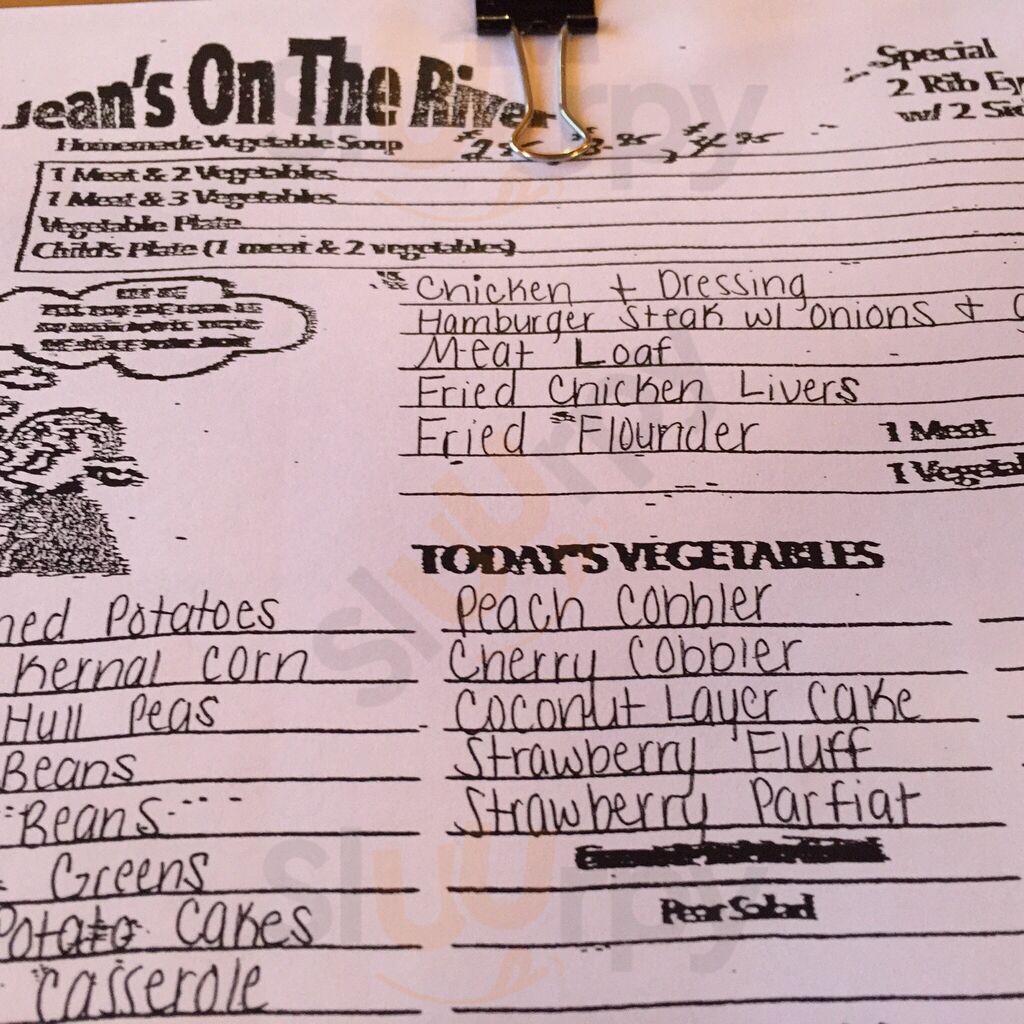 Jean's On The River
Special
2 Rib
w/ 2
Homemade Vegetable Soup
1 Meat & 2 Vegetables
1 Meat & 3 Vegetables
Vegetable Plate
Child's Plate (1 meat & 2 vegetables)
Chicken + Dressing
Hamburger Steak w/ onions +
Meat Loaf
Fried Chicken Livers
Fried Flounder
1 Meat
1
TODAY'S VEGETABLES
Potatoes
Kernal Corn
Hull Peas
Beans
Beans
Greens
Potato Cakes
Casserole
Peach Cobbler
Cherry Cobbler
Coconut Layer Cake
Strawberry Fluff
Strawberry Parfiat
Pear Salad
sluurpy
sluurpy
sluurpy